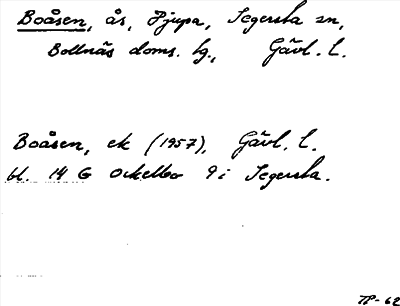 Boåsen, ås, Djupa, Segersta sn,
Bollnäs doms. hg., Gävl. l.
Boåsen, ek (1957), Gävl. l.
bl. 14 G Ockelbo 9 i Segersta.
TP-62